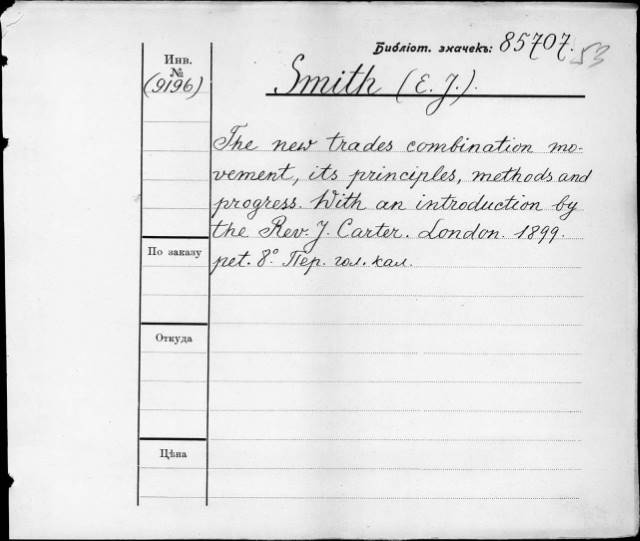 Библіот. значекъ: 85707. 53
Инв.
№
(9196)
Smith (E. J.).
The new trades combination mo-
vement, its principles, methods and
progress. With an introduction by
the Rev. J. Carter. London. 1899.
По заказу
pet. 8º. Пер. гол. кал.
Откуда
Цѣна